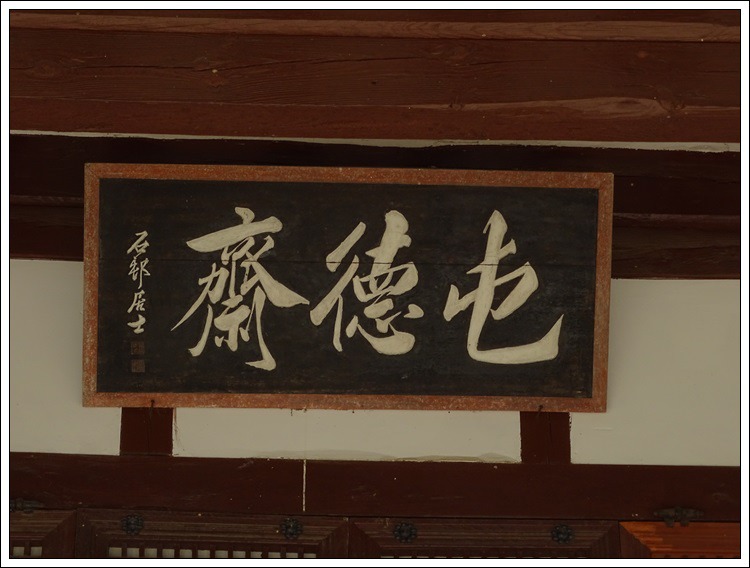 屯德齋
石邨居士